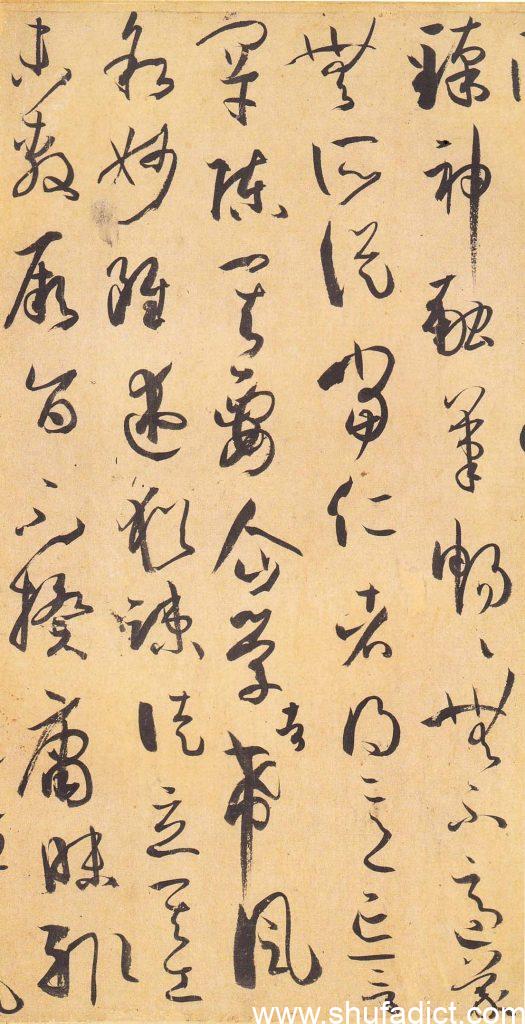 臻神融筆暢〻無不適蒙
無所從當仁者得意忘言
罕陳其要企學者希風
敘妙雖述猶疎徒立其工
未敷厥旨不揆庸昧輒
www.shufadict.com